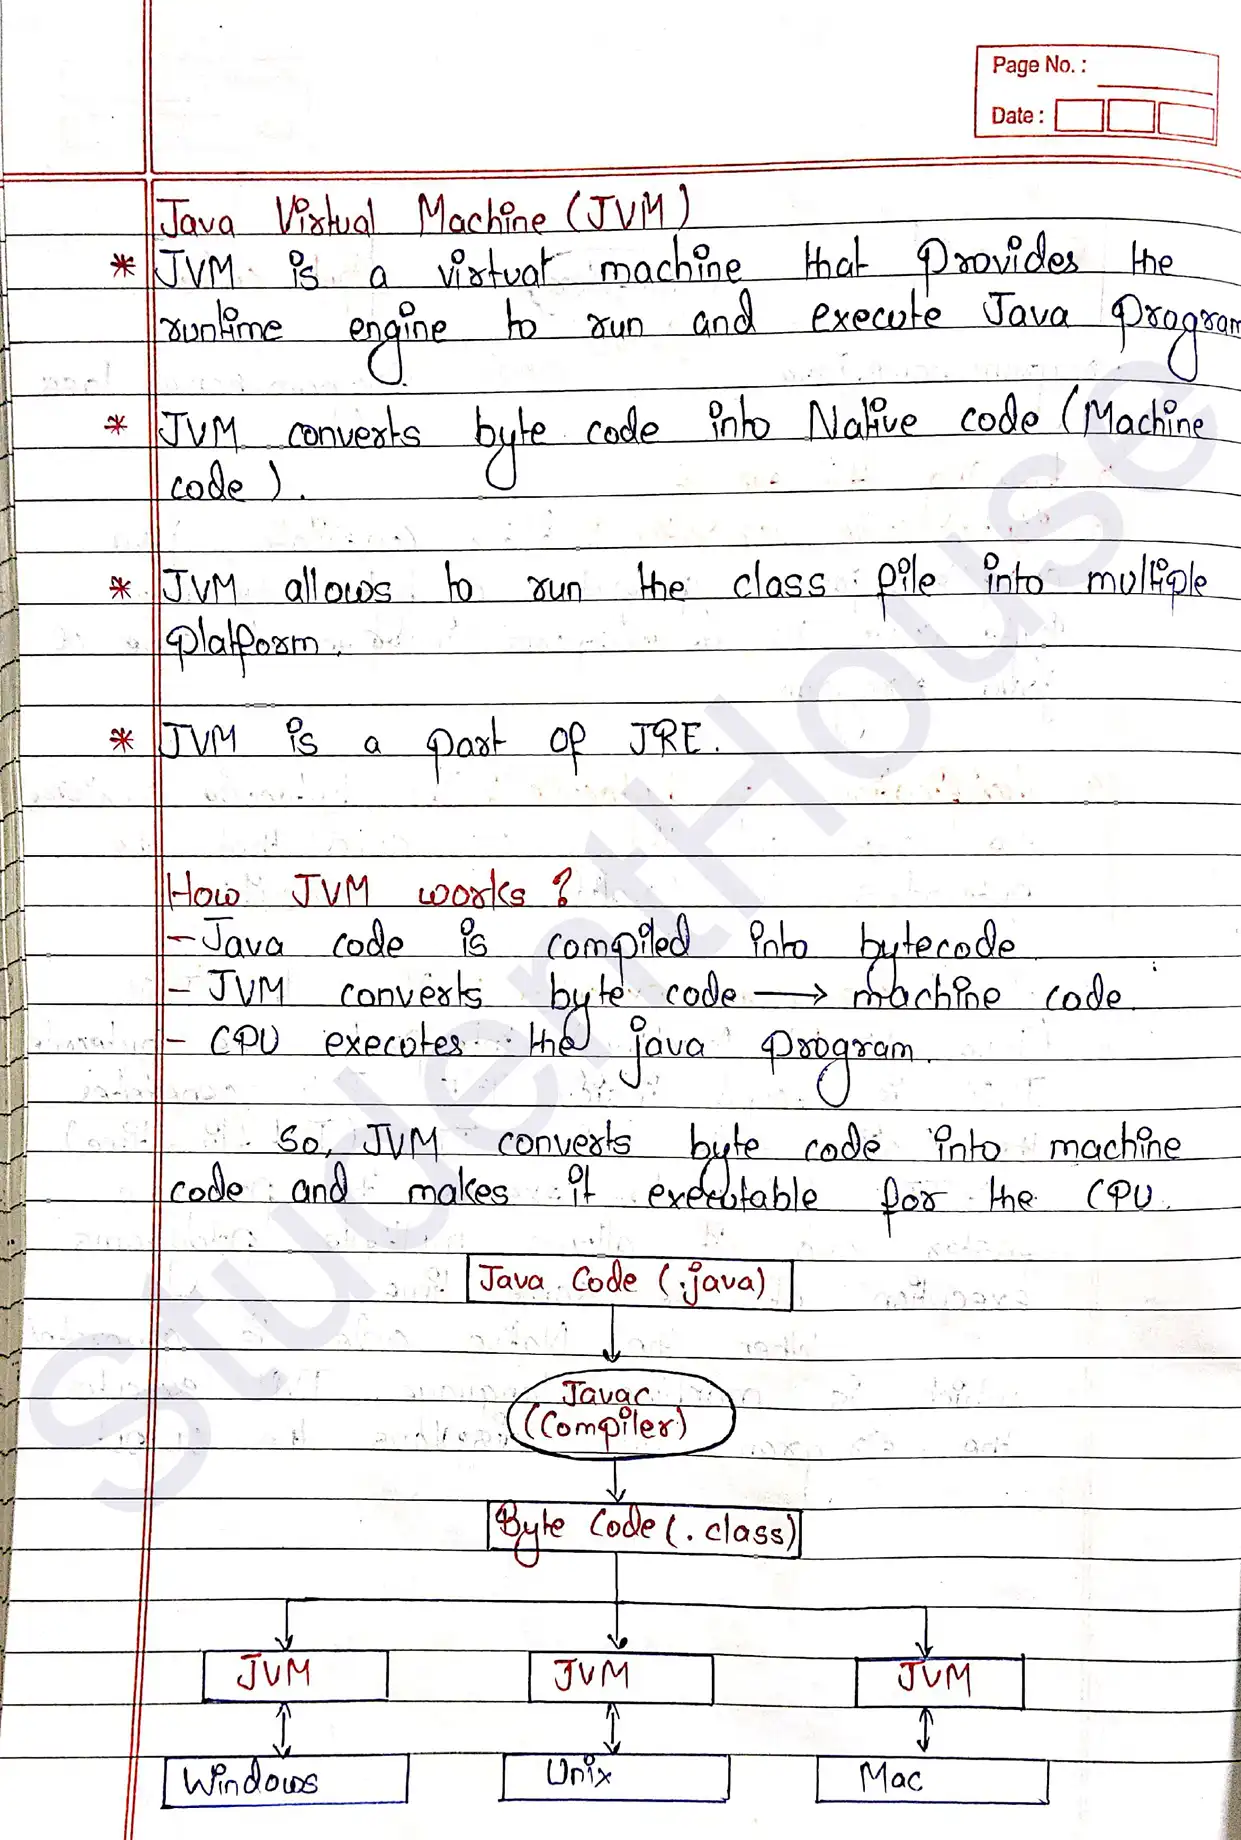 Page No. :
Date :
Java Virtual Machine (JVM)
* JVM is a virtual machine that provides the
runtime engine to run and execute Java program
* JVM converts byte code into Native code (Machine
code).
* JVM allows to run the class file into multiple
platform.
* JVM is a part of JRE.
How JVM works ?
- Java code is compiled into bytecode
- JVM converts byte code → machine code.
- CPU executes the java program.
So, JVM converts byte code into machine
code and makes it executable for the CPU.
Java Code (.java)
Javac
(Compiler)
Byte Code (.class)
JVM JVM JVM
Windows Unix Mac
StudentHouse